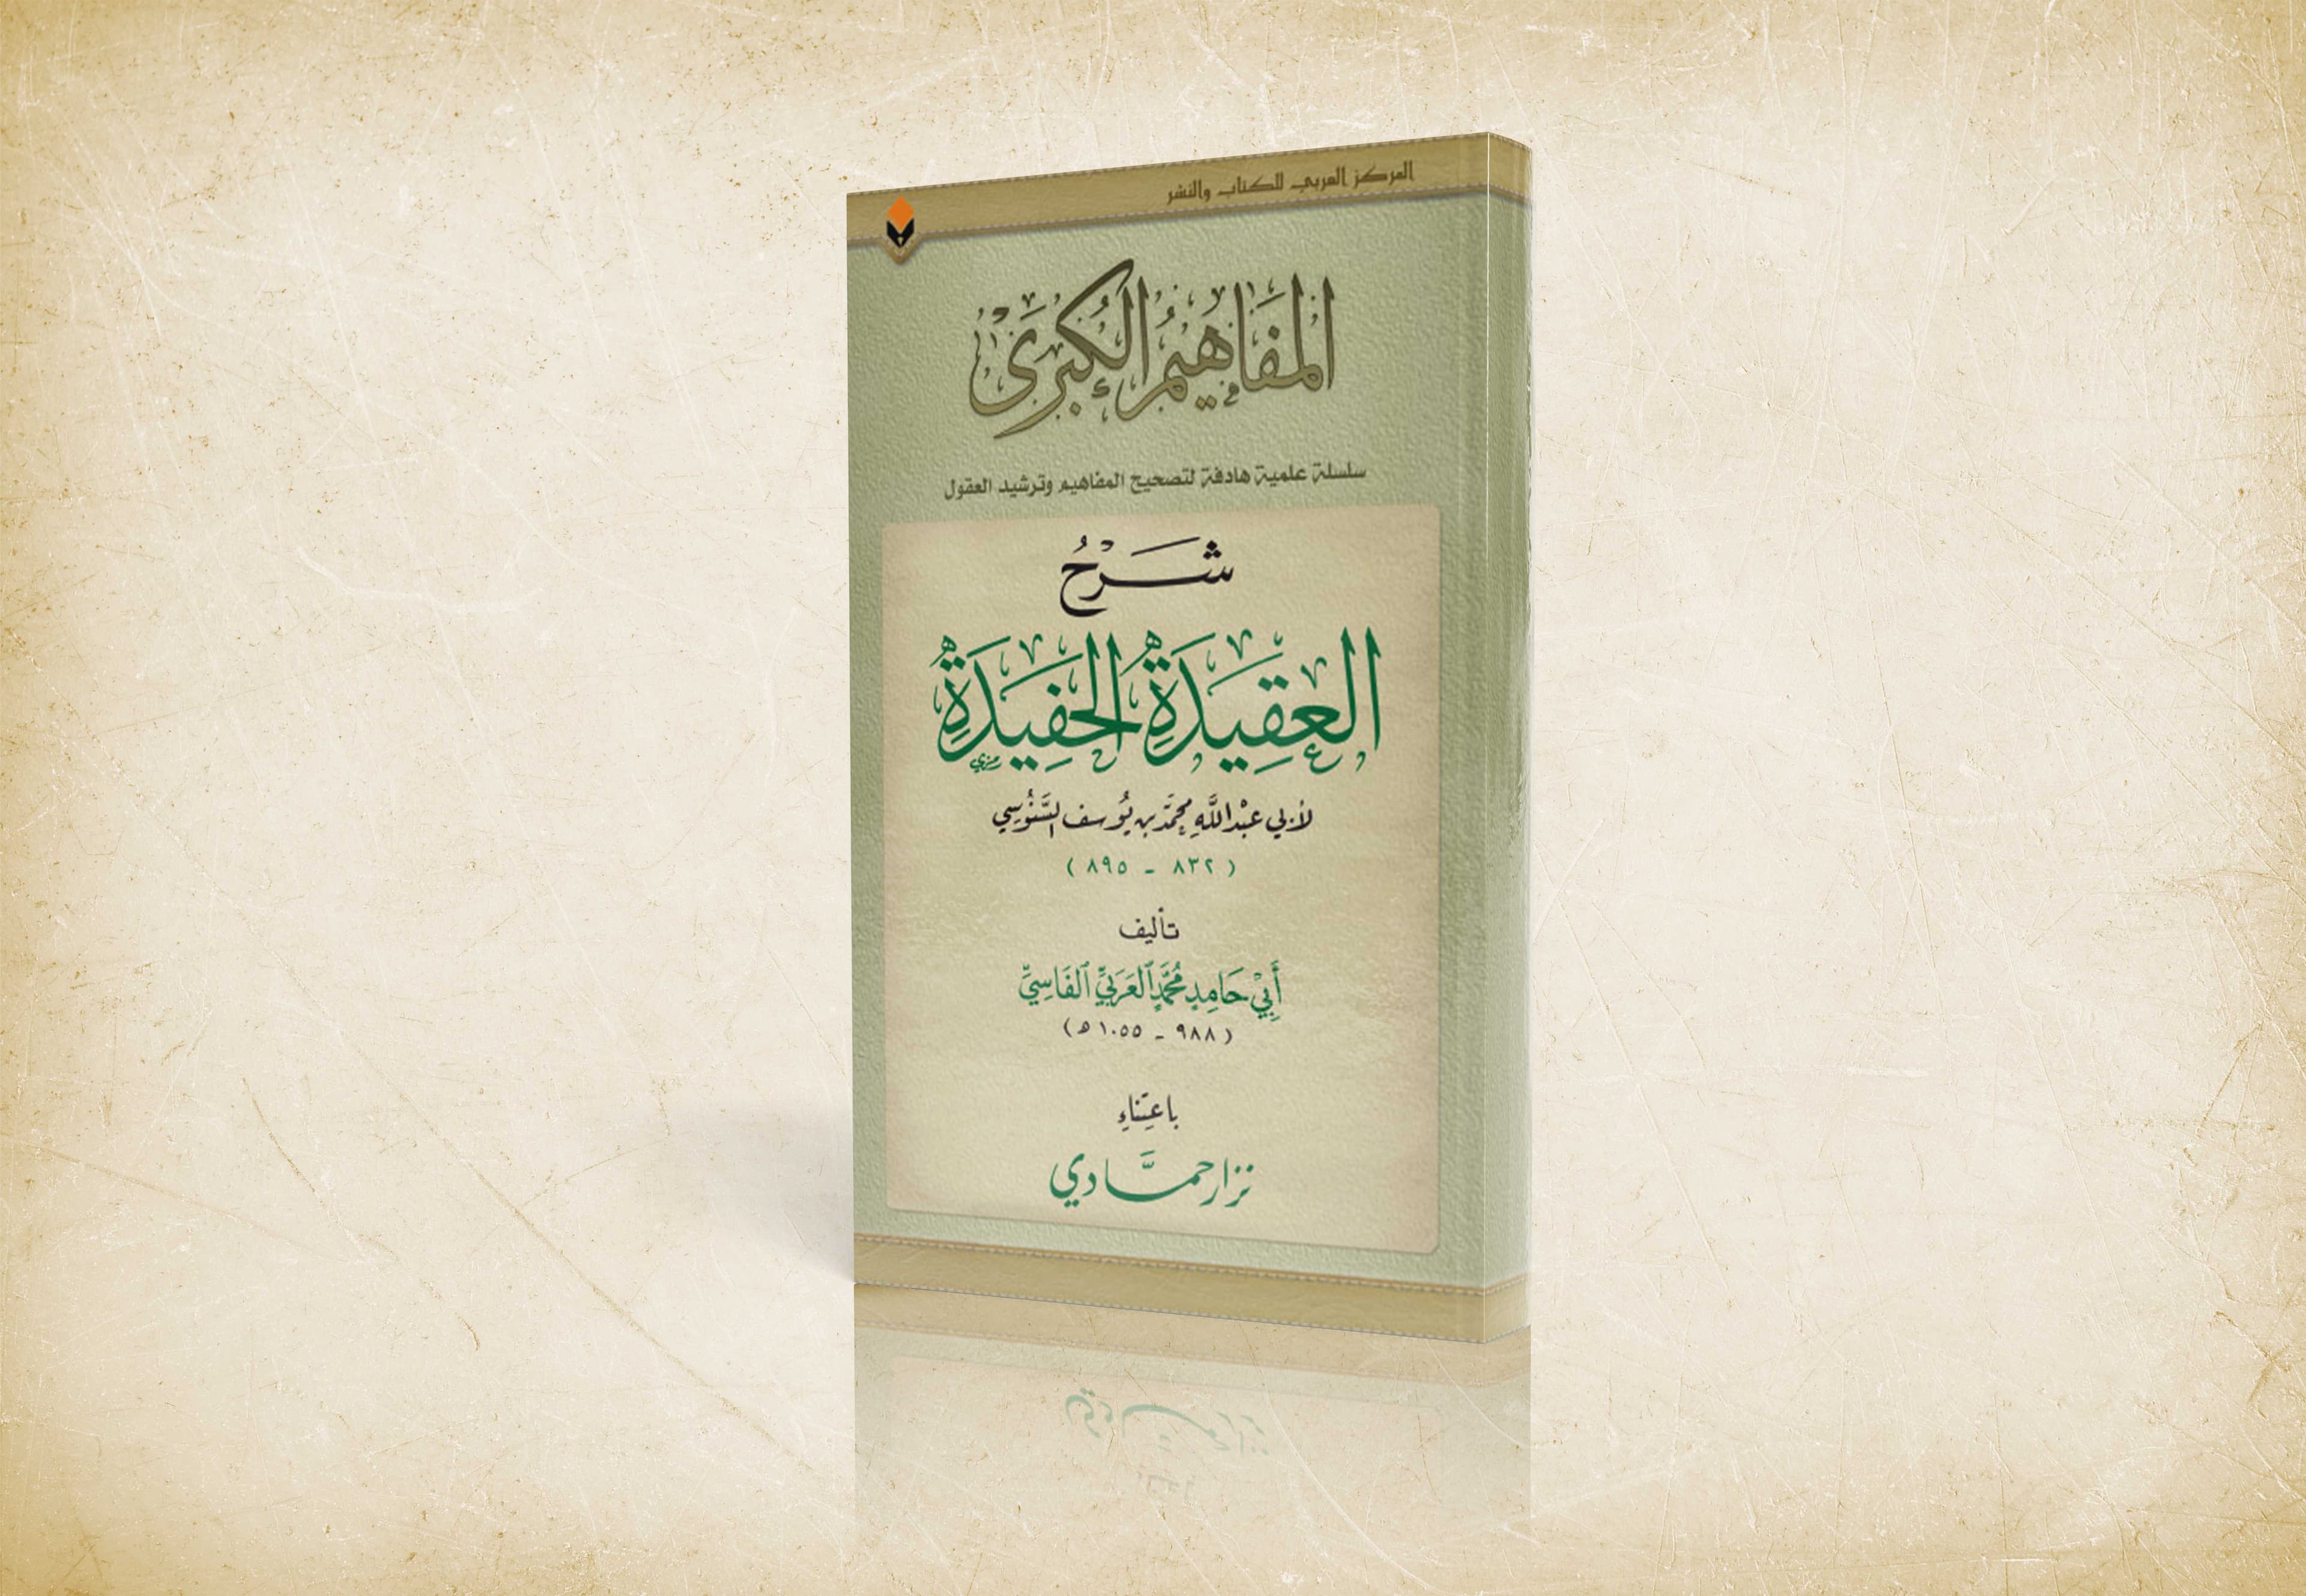 المركز العربي للكتاب والنشر
المفاهيم الكبرى
سلسلة علمية هادفة لتصحيح المفاهيم وترشيد العقول
شَرْحُ
العَقِيدَةِ الحَفِيدَةِ
لأبي عبْد اللَّهِ محمَّد بن يُوسف السَّنُوسِي
( ٨٣٢ - ٨٩٥ )
تأليف
أَبِي حَامِدٍ مُحَمَّدٍ العَرَبِيِّ الفَاسِيِّ
( ٩٨٨ - ١٠٥٥ ه )
باعتِناءِ
نزار حمَّادي